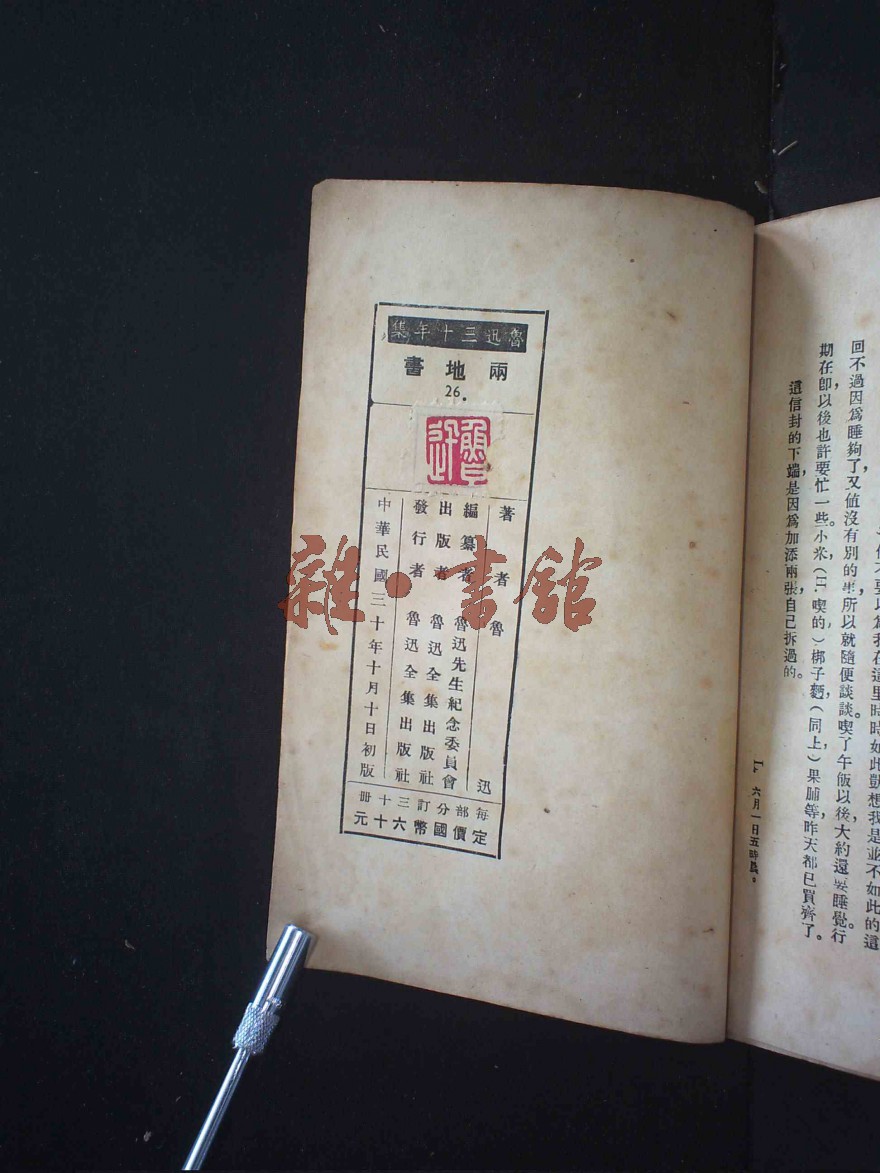 魯迅三十年集
兩地書
26.
魯迅
著者 魯迅
編纂者 魯迅先生紀念委員會
出版者 魯迅全集出版社
發行者 魯迅全集出版社
中華民國三十年十月十日初版
每部分訂三十冊
定價國幣六十元
雜·書館
回不過因爲睡夠了，又值沒有別的事，所以就隨便談談。喫了午飯以後，大約還要睡覺。行
期在卽，以後也許要忙一些。小米（H.喫的），梆子麪（同上），果脯等，昨天都已買齊了。
這信封的下端，是因爲加添兩張，自己拆過的。
L. 六月一日五時晨。